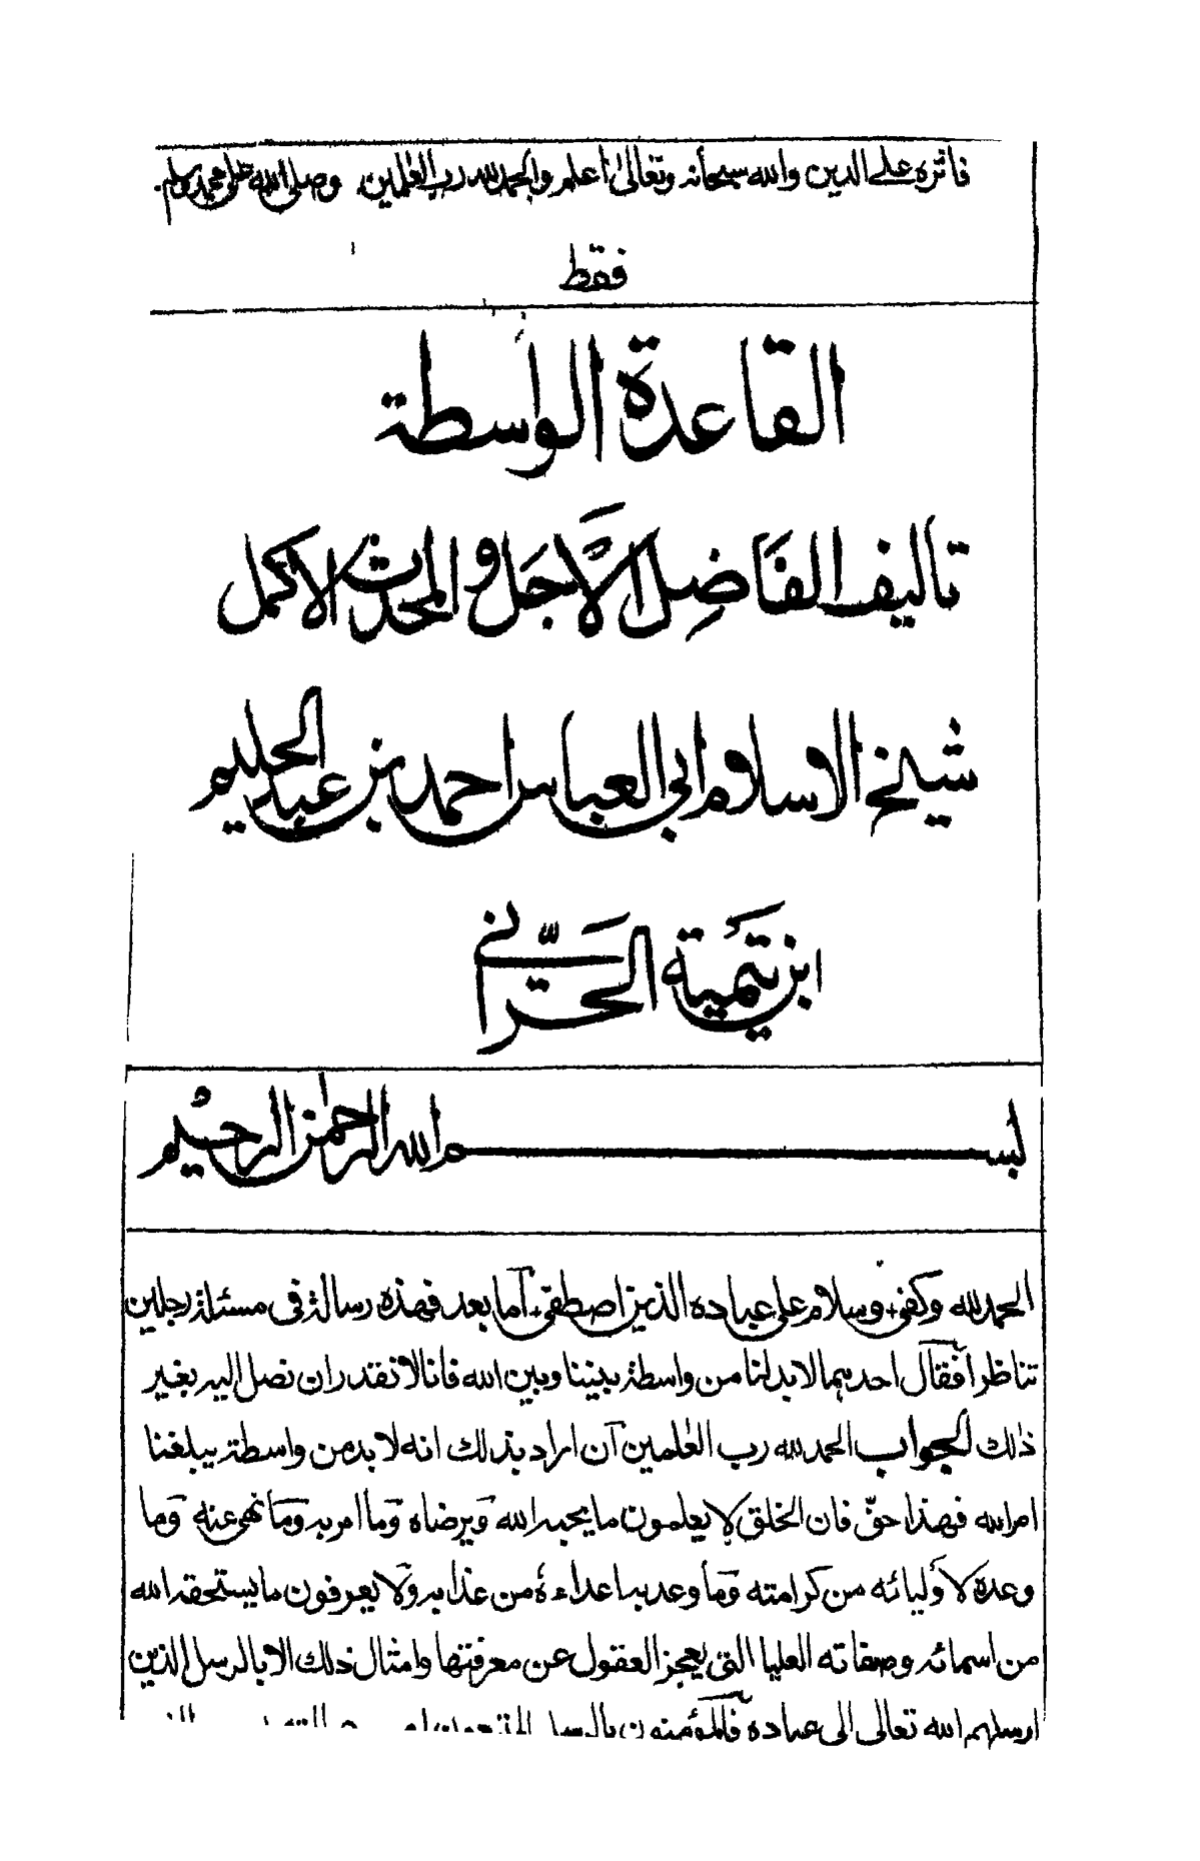 فاثره على الدين والله سبحانه وتعالىٰ اعلم والحمد لله رب العٰلمين وصلى الله على محمد وسلم
فقط
القاعدة الواسطة
تاليف الفَاضِل الاَجَل و المحدث الاكمل
شيخ الاسلام ابى العباس احمد بن عبد الحليم
ابن تيميَّة الحَرَّانى
بســـــــــم الله الرحمٰن الرحيم
الحمد لله وكفى وسلام على عباده الذين اصطفى۔ اما بعد فهذه رسالة فى مسئلة رجلين
تناظرا فقال احدهما لابد لنا من واسطة بيننا وبين الله فانا لا نقدر ان نصل اليه بغير
ذلك الجواب الحمد لله رب العٰلمين ان اراد بذلك انه لا بد من واسطة يبلغنا
امر الله فهذا حقّ فان الخلق لا يعلمون ما يحبه الله ويرضاه وما امر به وما نهى عنه وما
وعده لاوليائه من كرامته وما وعد به اعداءه من عذابه ولا يعرفون ما يستحقه الله
من اسمائه وصفاته العليا التى يعجز العقول عن معرفتها وامثال ذلك الا بالرسل الذين
ارسلهم الله تعالى الى عباده فالمؤمنون بالرسل المتبعون